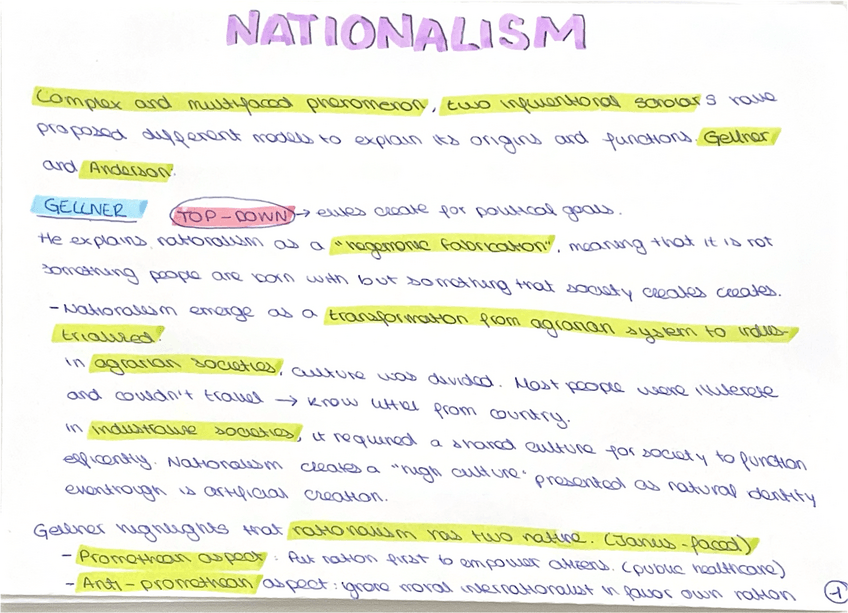 NATIONALISM
Complex and multifaced phenomenon, two influentional scholars have
proposed different models to explain its origins and functions. Gellner
and Anderson.
GELLNER TOP-DOWN → elites create for political goals.
He explains nationalism as a "hegemonic fabrication", meaning that it is not
something people are born with but something that society creates creates.
- Nationalism emerge as a transformation from agrarian system to indus-
trialized.
In agrarian societies, culture was divided. Most people were illiterete
and couldn't travel → know littel from country.
In industrialise societies, it required a shared culture for society to function
efficently. Nationalism creates a "high culture" presented as natural identity
eventhough is artificial creation.
Gellner highlights that nationalism has two nature. (Janus-faced)
- Promothean aspect: Put nation first to empower citizens. (public healthcare)
- Anti-promothean aspect: ignore moral internationalist in favor own nation